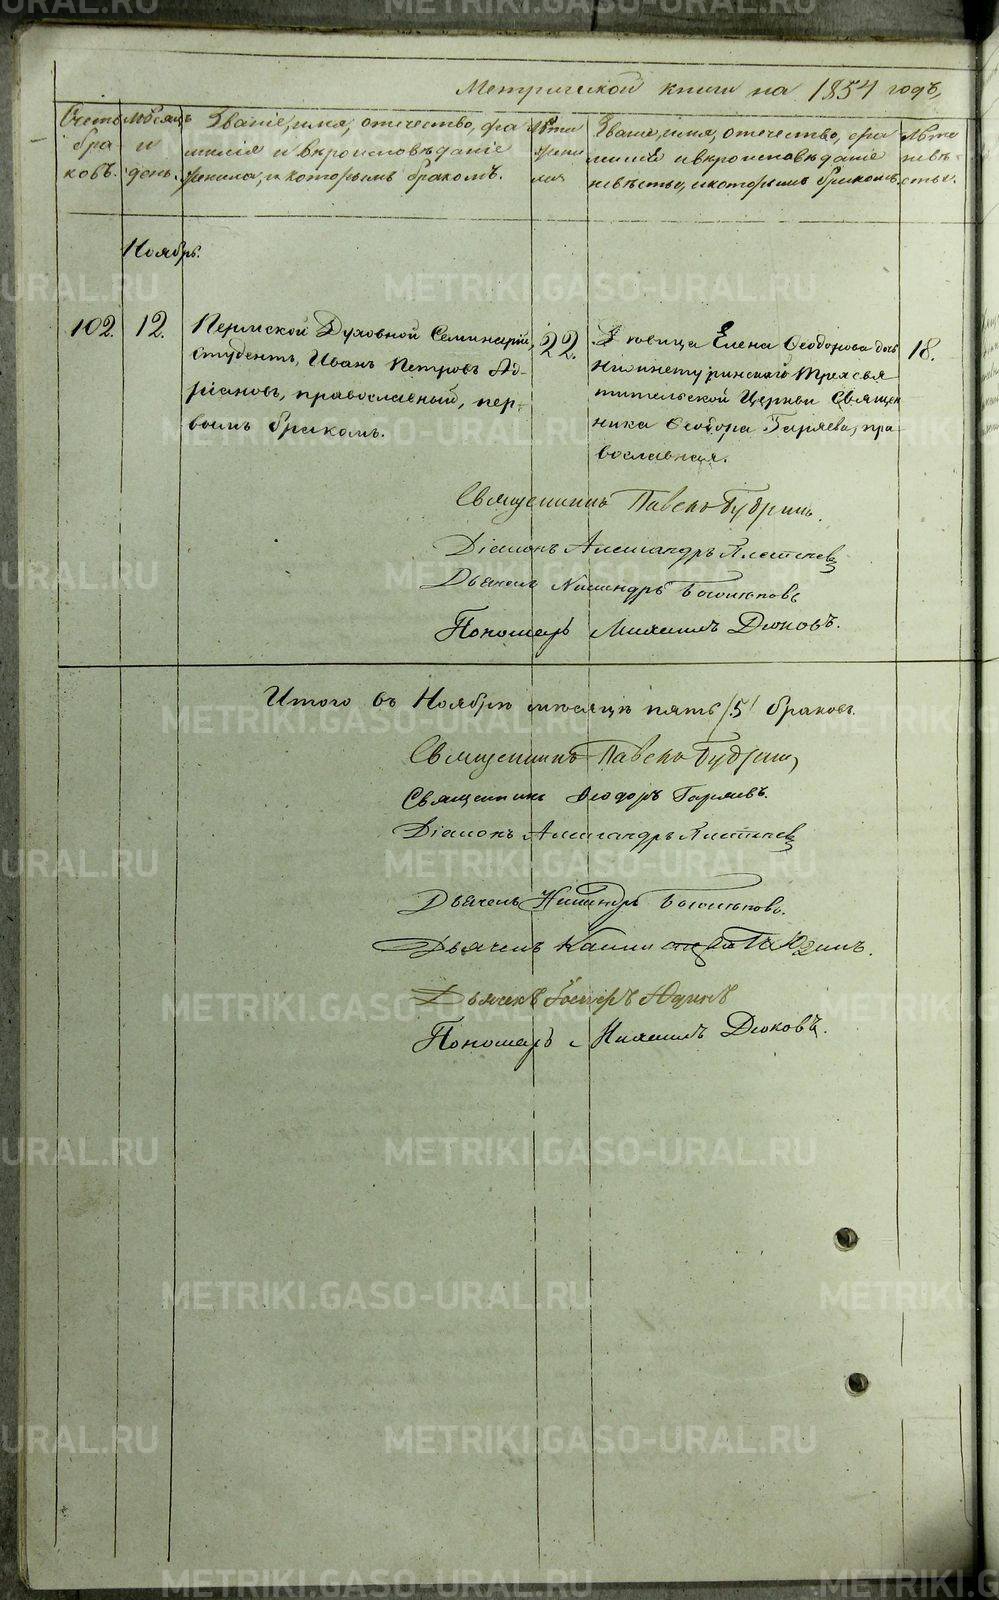 Метрической книги на 1854 годъ,
Счетъ
бра
ковъ.
Мѣсяцъ
и
день.
Званіе, имя, отчество, фа
милія и вѣроисповѣданіе
жениха, и которымъ бракомъ.
Лѣта
жени
ха
Званіе, имя, отчество, фа
милія и вѣроисповѣданіе
невѣсты, и которымъ бракомъ.
Лѣта
невѣ-
сты.
Ноябрь.
102.
12.
Пермской Духовной Семинаріи,
студентъ, Иванъ Петровъ Ад-
ріановъ, православный, пер-
вымъ бракомъ.
22.
Дѣвица Елена Феодорова дочь
Нижнетуринской Трехсвя
тительской Церкви Священ
ника Феодора Гаряева, пра
вославная.
18.
Священникъ Павелъ Будринъ.
Діаконъ Александръ
Дьячекъ Никандръ
Пономарь Михаилъ Дюковъ.
Итого въ Ноябрѣ мѣсяцѣ пять /5/ браковъ.
Священникъ Павелъ Будринъ,
Священникъ Феодоръ Гаряевъ.
Діаконъ Александръ
Дьячекъ Никандръ
Дьячекъ Юдинъ.
Дьячекъ Юдинъ
Пономарь Михаилъ Дюковъ.
METRIKI.GASO-URAL.RU